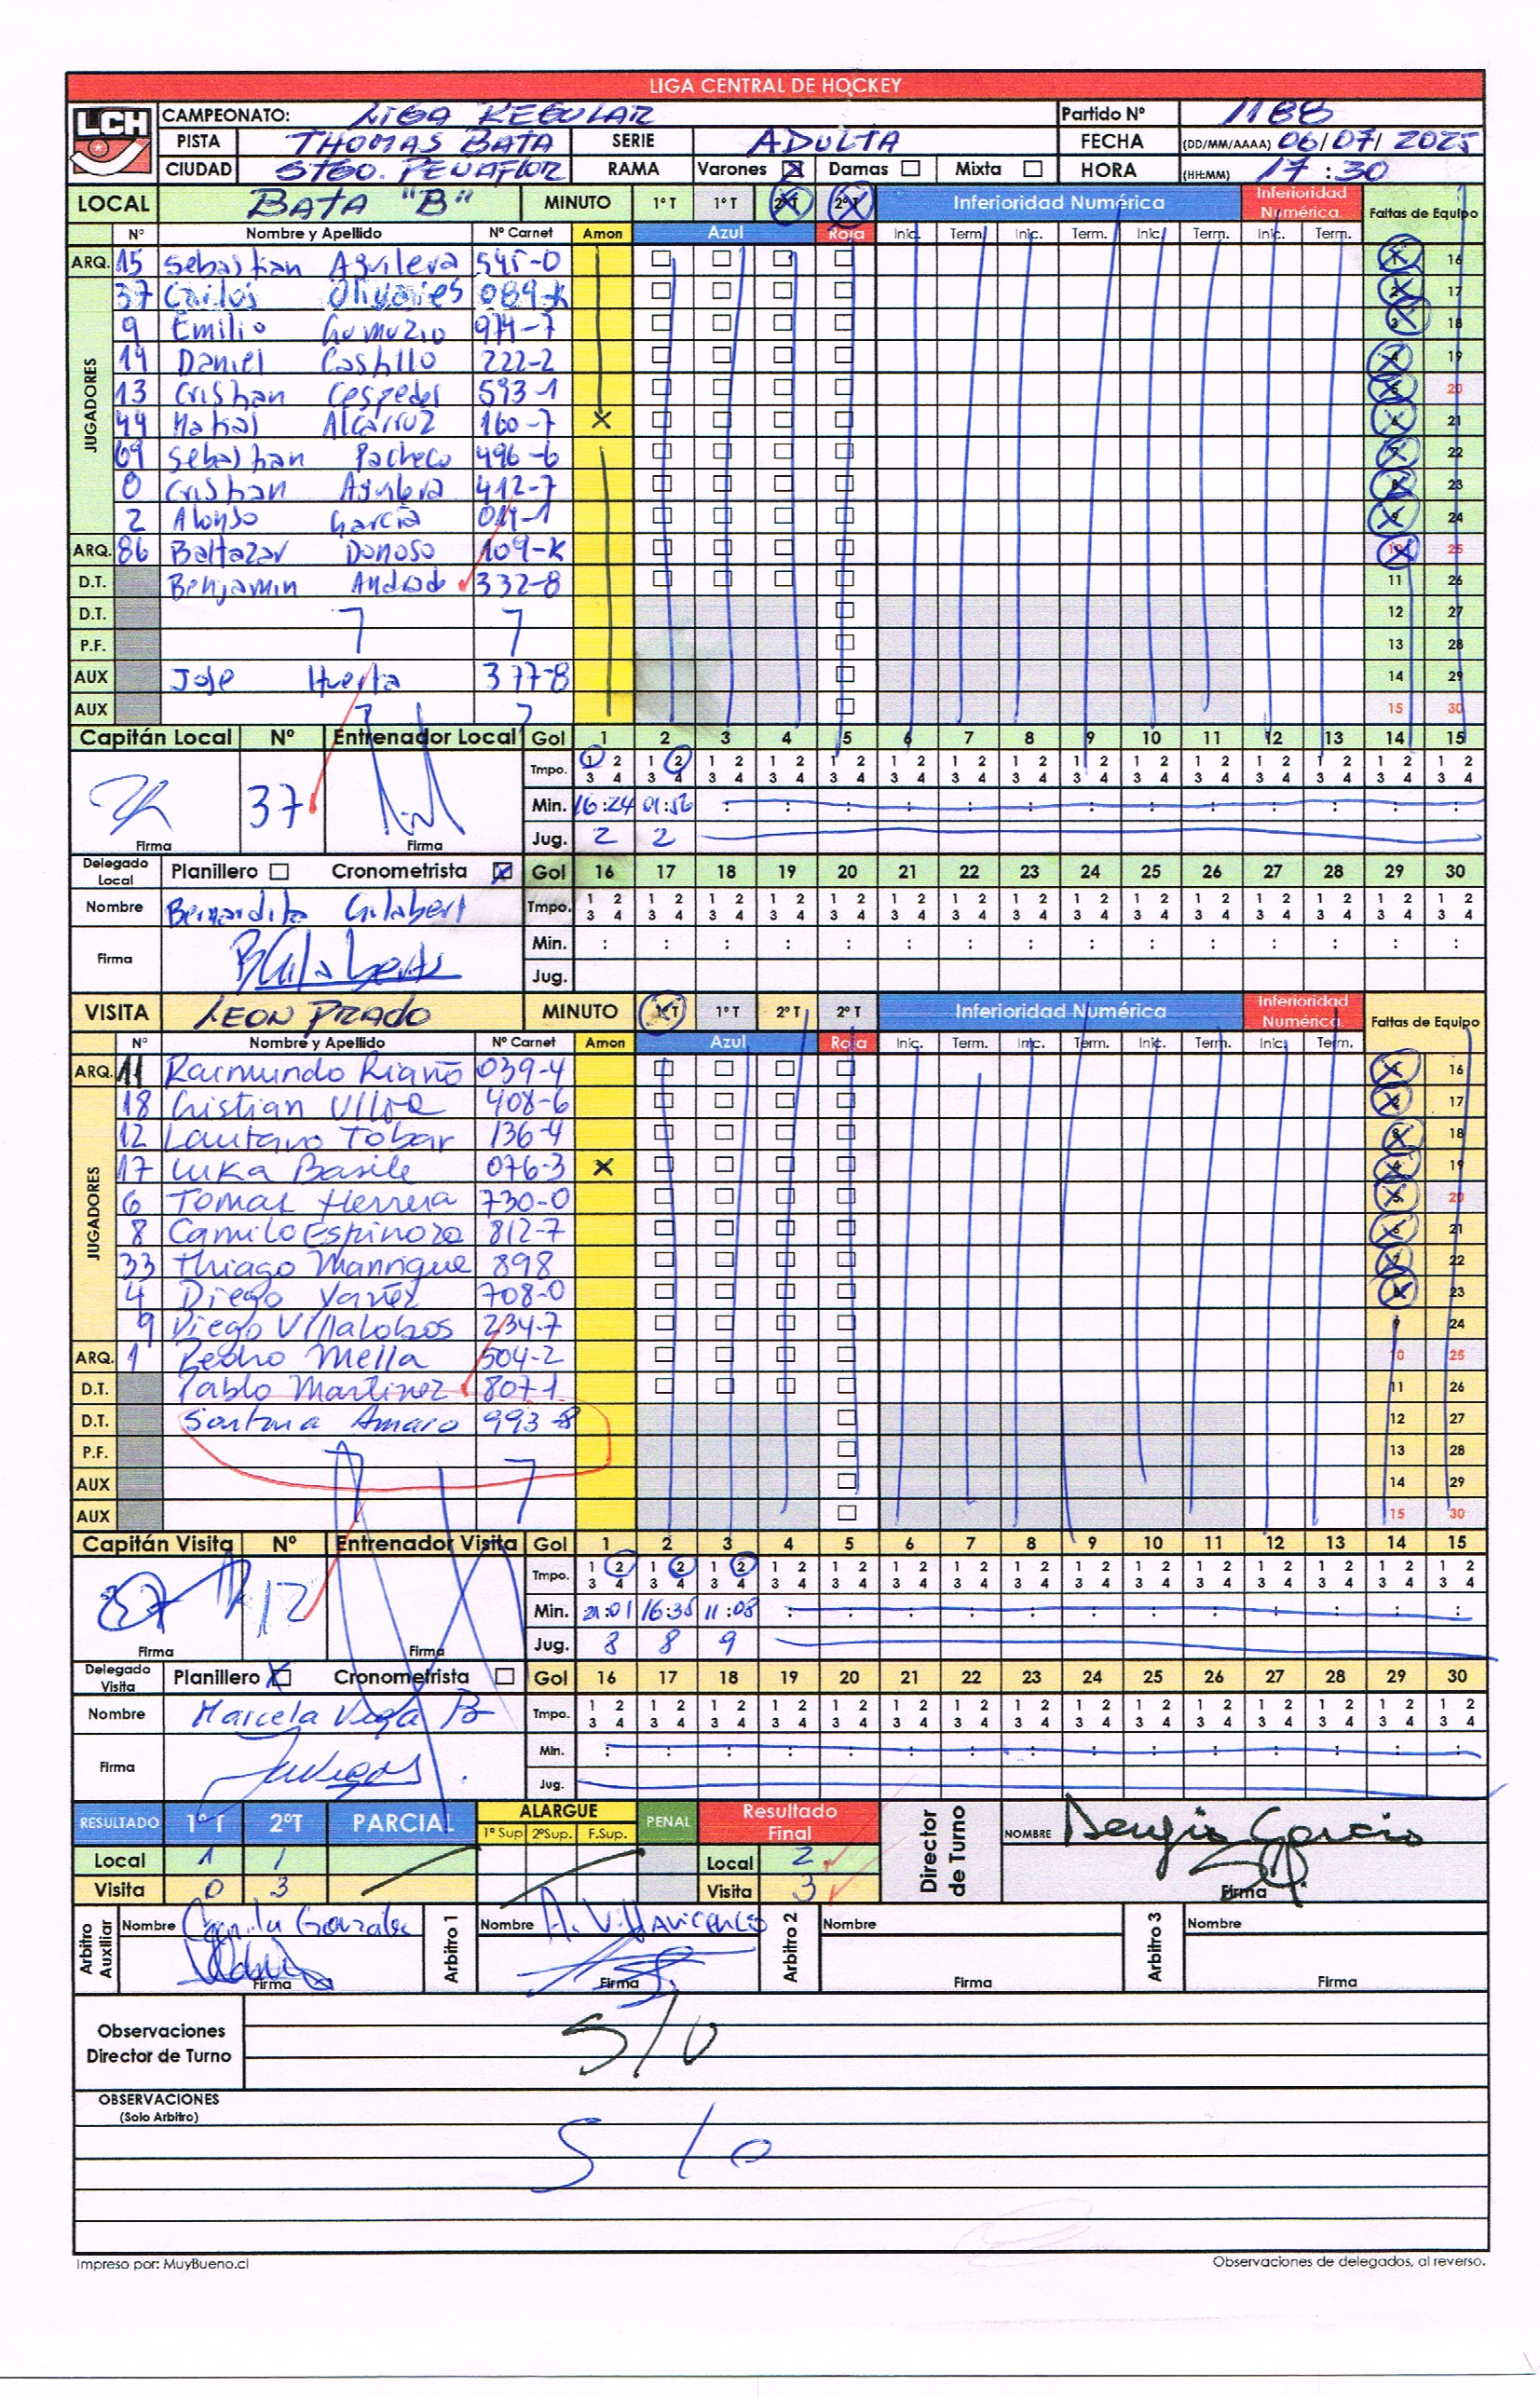 LIGA CENTRAL DE HOCKEY
LCH
CAMPEONATO: LIGA REGULAR Partido Nº 1188
PISTA THOMAS BATA SERIE ADULTA FECHA (DD/MM/AAAA) 06/07/2025
CIUDAD STGO. PEÑAFLOR RAMA Varones Damas Mixta HORA (HH:MM) 17:30
LOCAL BATA "B" MINUTO 1º T 1º T 2º T 2º T Inferioridad Numérica Inferioridad Numérica. Faltas de Equipo
Nº Nombre y Apellido Nº Carnet Amon Azul Roja Inic. Term. Inic. Term. Inic. Term. Inic. Term.
ARQ. 15 Sebastian Aguilera 545-0 1 16
JUGADORES
37 Carlos Olivares 089-K 2 17
9 Emilio Gumuzio 974-7 3 18
19 Daniel Castillo 222-2 4 19
13 Cristian Cespedes 593-1 5 20
44 Matias Alcarruz 160-7 X 6 21
69 Sebastian Pacheco 496-6 7 22
0 Cristian Aguilera 412-7 8 23
2 Alonso Garcia 011-1 9 24
ARQ. 86 Baltazar Donoso 109-K 10 25
D.T. Benjamin Andrade 332-8 11 26
D.T. 12 27
P.F. 13 28
AUX Jose Huerta 377-8 14 29
AUX 15 30
Capitán Local Nº Entrenador Local Gol 1 2 3 4 5 6 7 8 9 10 11 12 13 14 15
Tmpo. 1 2 3 4 1 2 3 4 1 2 3 4 1 2 3 4 1 2 3 4 1 2 3 4 1 2 3 4 1 2 3 4 1 2 3 4 1 2 3 4 1 2 3 4 1 2 3 4 1 2 3 4 1 2 3 4 1 2 3 4
37 Min. 16:24 01:56 : : : : : : : : : : : : :
Firma Firma Jug. 2 2
Delegado Local Planillero Cronometrista Gol 16 17 18 19 20 21 22 23 24 25 26 27 28 29 30
Nombre Bernardita Gilabert Tmpo. 1 2 3 4 1 2 3 4 1 2 3 4 1 2 3 4 1 2 3 4 1 2 3 4 1 2 3 4 1 2 3 4 1 2 3 4 1 2 3 4 1 2 3 4 1 2 3 4 1 2 3 4 1 2 3 4 1 2 3 4
Firma BGilabert Min. : : : : : : : : : : : : : : :
Jug.
VISITA LEON PRADO MINUTO 1º T 1º T 2º T 2º T Inferioridad Numérica Inferioridad Numérica. Faltas de Equipo
Nº Nombre y Apellido Nº Carnet Amon Azul Roja Inic. Term. Inic. Term. Inic. Term. Inic. Term.
ARQ. 11 Raimundo Riaño 039-4 1 16
JUGADORES
18 Cristian Ulloa 408-6 2 17
12 Lautaro Tobar 136-4 3 18
17 Luka Basile 076-3 X 4 19
6 Tomas Herrera 730-0 5 20
8 Camilo Espinoza 812-7 6 21
33 Thiago Manrique 898 7 22
4 Diego Yañez 708-0 8 23
9 Diego Villalobos 234-7 9 24
ARQ. 1 Pedro Mella 504-2 10 25
D.T. Pablo Martinez 807-1 11 26
D.T. Amaro 993-8 12 27
P.F. 13 28
AUX 14 29
AUX 15 30
Capitán Visita Nº Entrenador Visita Gol 1 2 3 4 5 6 7 8 9 10 11 12 13 14 15
Tmpo. 1 2 3 4 1 2 3 4 1 2 3 4 1 2 3 4 1 2 3 4 1 2 3 4 1 2 3 4 1 2 3 4 1 2 3 4 1 2 3 4 1 2 3 4 1 2 3 4 1 2 3 4 1 2 3 4 1 2 3 4
12 Min. 21:01 16:35 11:08 : : : : : : : : : : : :
Firma Firma Jug. 8 8 9
Delegado Visita Planillero Cronometrista Gol 16 17 18 19 20 21 22 23 24 25 26 27 28 29 30
Nombre Marcela Vega B Tmpo. 1 2 3 4 1 2 3 4 1 2 3 4 1 2 3 4 1 2 3 4 1 2 3 4 1 2 3 4 1 2 3 4 1 2 3 4 1 2 3 4 1 2 3 4 1 2 3 4 1 2 3 4 1 2 3 4 1 2 3 4
Firma Min. : : : : : : : : : : : : : : :
Jug.
RESULTADO 1º T 2ºT PARCIAL ALARGUE 1º Sup 2ºSup. F.Sup. PENAL Resultado Final Director de Turno NOMBRE Sergio Garcia
Local 1 1 Local 2
Visita 0 3 Visita 3 Firma
Arbitro Auxiliar Nombre Camila Gonzalez Arbitro 1 Nombre A. Villavicencio Arbitro 2 Nombre Arbitro 3 Nombre
Firma Firma Firma Firma
Observaciones Director de Turno S/O
OBSERVACIONES (Solo Arbitro) S/O
Impreso por: MuyBueno.cl Observaciones de delegados, al reverso.